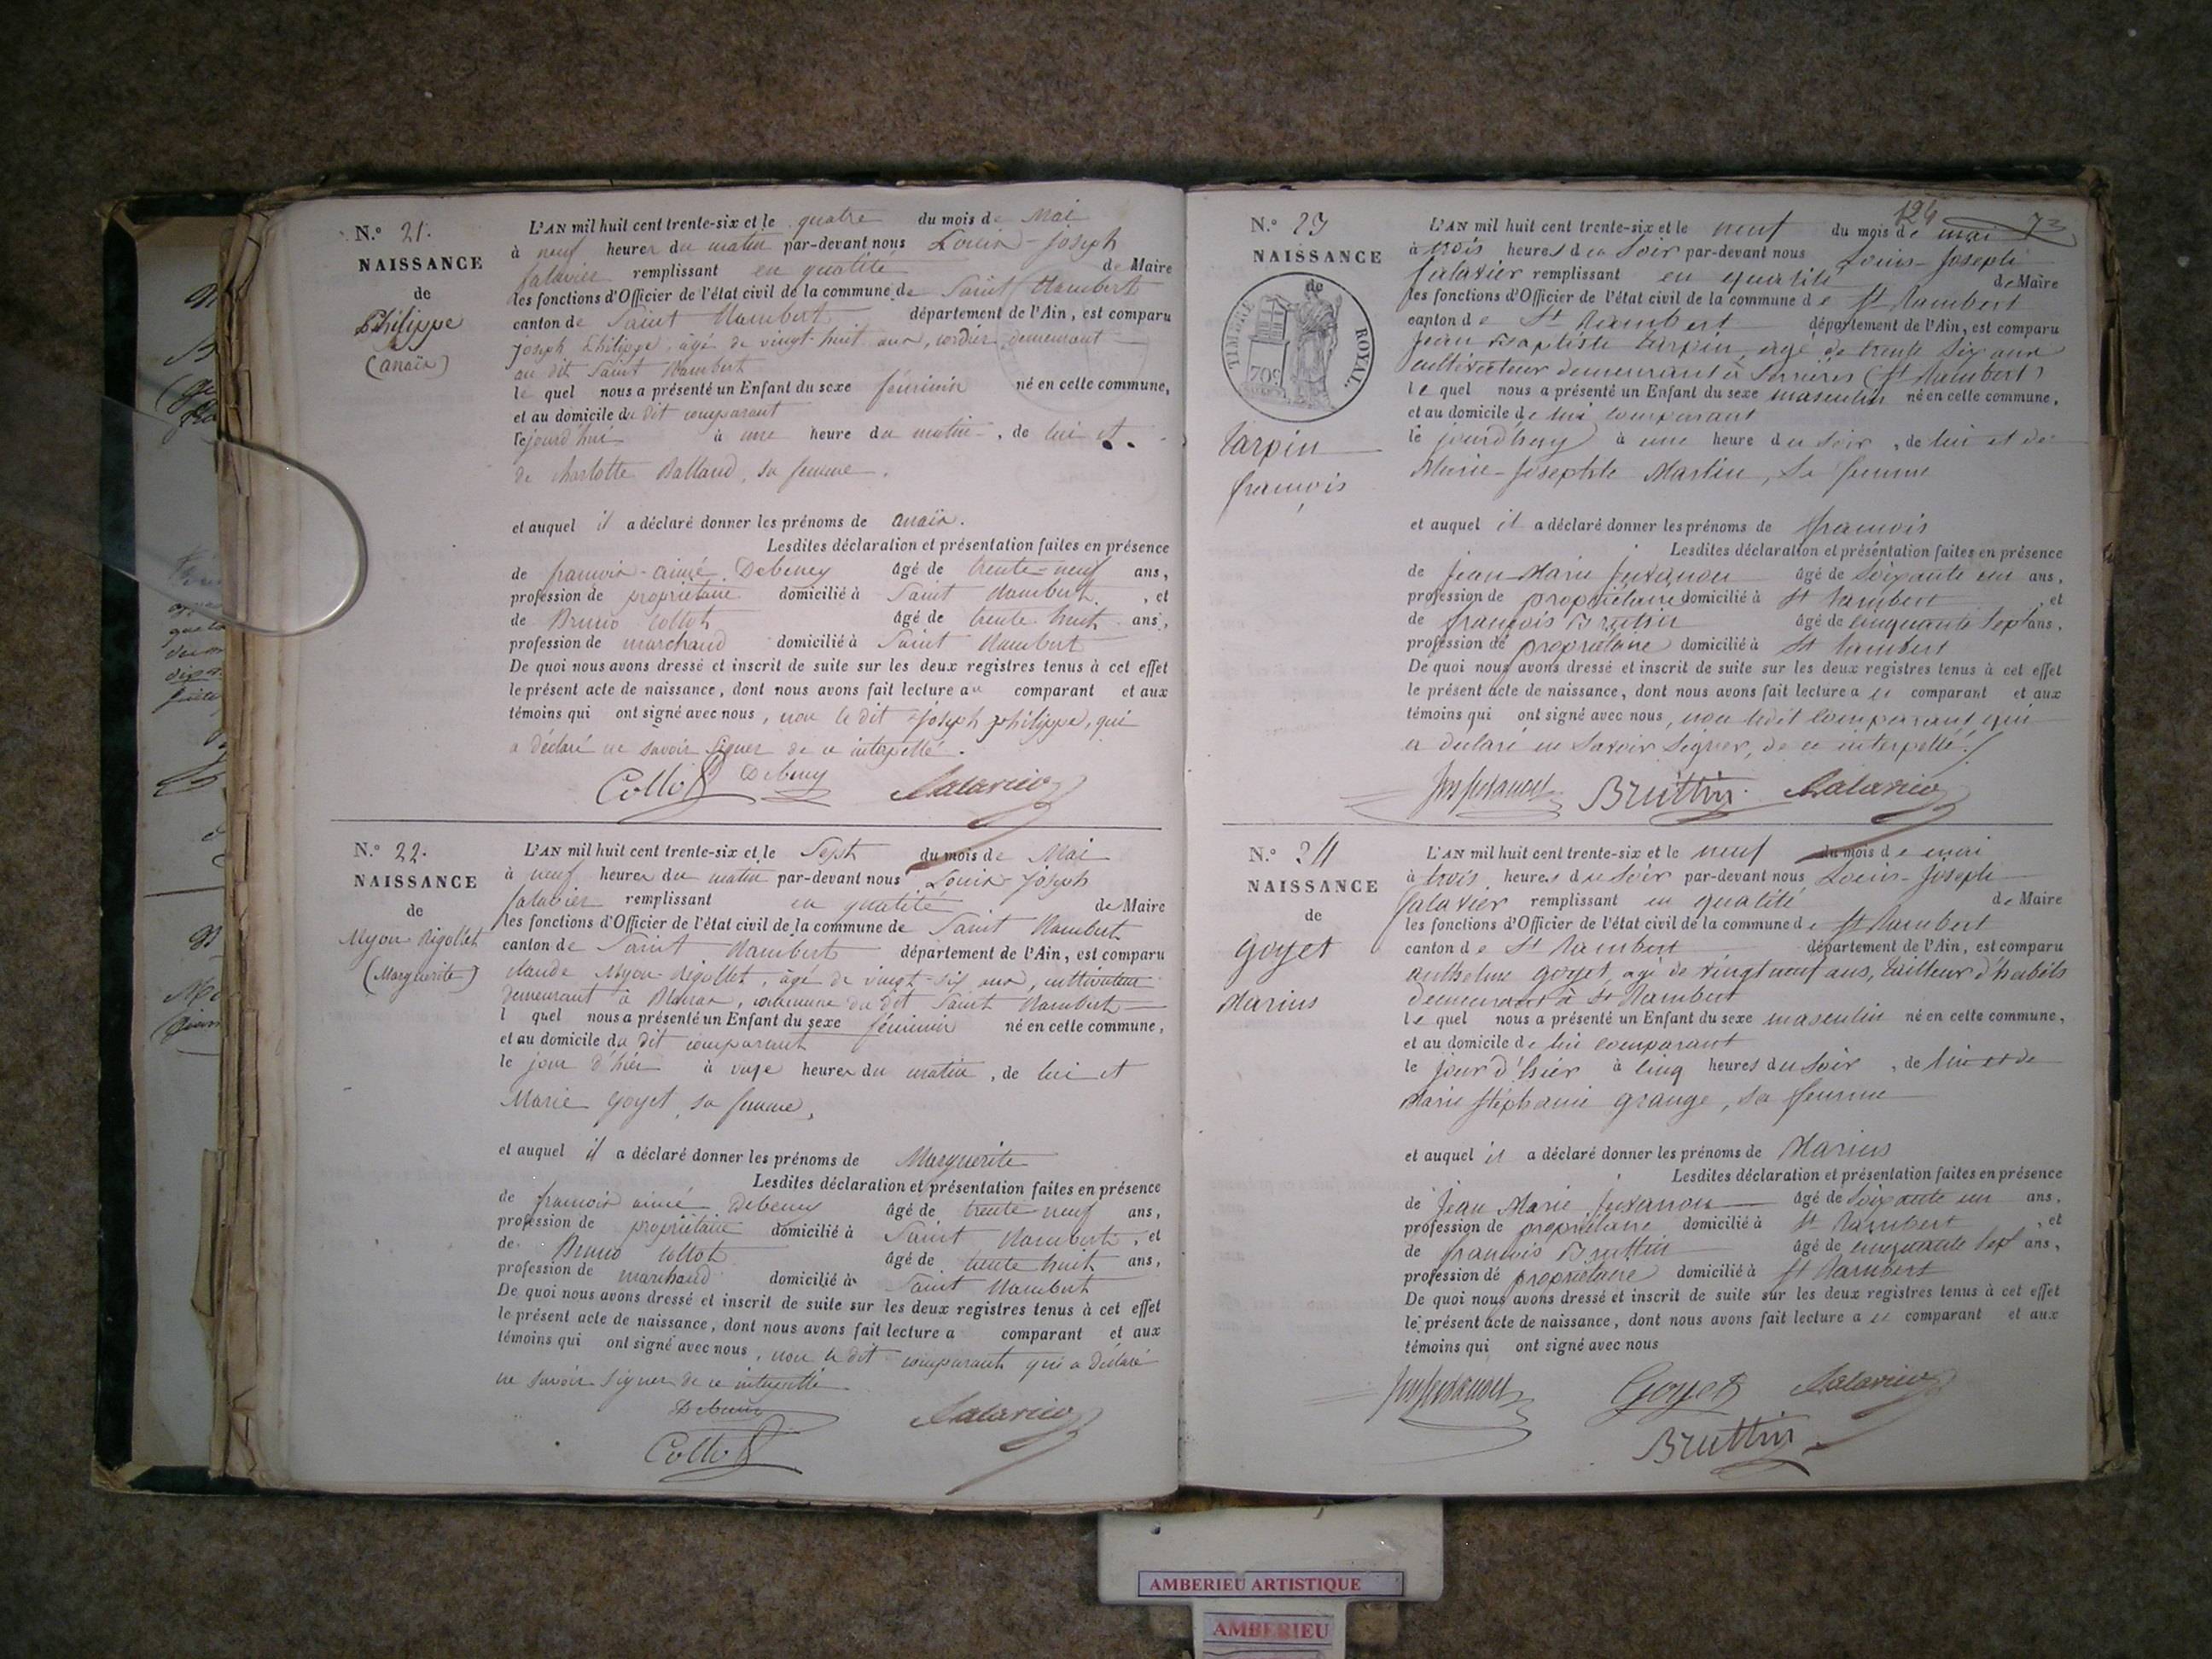 N.º 21.
NAISSANCE
de
Philippe
(anaïs)
L'AN mil huit cent trente-six et le quatre du mois de Mai
à neuf heures du matin par-devant nous Louis-Joseph
Salavier remplissant en qualité de Maire
les fonctions d'Officier de l'état civil de la commune de Saint Rambert
canton de Saint Rambert département de l'Ain, est comparu
joseph Philippe, âgé de vingt-huit ans, cordier demeurant
au dit Saint Rambert
le quel nous a présenté un Enfant du sexe féminin né en cette commune,
et au domicile du dit comparant
cejourd'hui à une heure du matin, de lui et
de Charlotte Balland, sa femme.
et auquel il a déclaré donner les prénoms de anaïs.
Lesdites déclaration et présentation faites en présence
de françois-aimé Debeney âgé de trente-neuf ans,
profession de propriétaire domicilié à Saint Rambert, et
de Bruno Collot âgé de trente huit ans,
profession de marchand domicilié à Saint Rambert
De quoi nous avons dressé et inscrit de suite sur les deux registres tenus à cet effet
le présent acte de naissance, dont nous avons fait lecture au comparant et aux
témoins qui ont signé avec nous, non le dit joseph philippe, qui
a déclaré ne savoir signer de ce interpellé.
Collot Debeney Salavier
N.º 22.
NAISSANCE
de
Myon Rigollet
(Marguerite)
L'AN mil huit cent trente-six et le Sept du mois de Mai
à neuf heures du matin par-devant nous Louis-Joseph
Salavier remplissant en qualité de Maire
les fonctions d'Officier de l'état civil de la commune de Saint Rambert
canton de Saint Rambert département de l'Ain, est comparu
claude Myon-Rigollet, âgé de vingt-six ans, cultivateur
demeurant à Blanas, commune du dit Saint Rambert
l quel nous a présenté un Enfant du sexe féminin né en cette commune,
et au domicile du dit comparant
le jour d'hier à onze heures du matin, de lui et
Marie Goyet, sa femme,
et auquel il a déclaré donner les prénoms de Marguerite
Lesdites déclaration et présentation faites en présence
de françois aimé Debeney âgé de trente neuf ans,
profession de propriétaire domicilié à Saint Rambert, et
de Bruno Collot âgé de trente huit ans,
profession de marchand domicilié à Saint Rambert
De quoi nous avons dressé et inscrit de suite sur les deux registres tenus à cet effet
le présent acte de naissance, dont nous avons fait lecture a comparant et aux
témoins qui ont signé avec nous, non le dit comparant qui a déclaré
ne savoir signer de ce interpellé
Debeney Salavier
Collot
124 73
N.º 23
NAISSANCE
de
TIMBRE ROYAL.
70c
Tarpin
françois
L'AN mil huit cent trente-six et le neuf du mois de mai
à trois heures du Soir par-devant nous Louis-Joseph
Salavier remplissant en qualité de Maire
les fonctions d'Officier de l'état civil de la commune de St Rambert
canton de St Rambert département de l'Ain, est comparu
Jean Baptiste Tarpin, agé de trente Six ans
cultivateur demeurant à Serrières (St Rambert)
le quel nous a présenté un Enfant du sexe masculin né en cette commune,
et au domicile de lui comparant
le jourd'huy à une heure du Soir, de lui et de
Marie-Josephte Martin, Sa femme
et auquel il a déclaré donner les prénoms de françois
Lesdites déclaration et présentation faites en présence
de Jean-Marie Juvanon âgé de Soixante un ans,
profession de propriétaire domicilié à St Rambert, et
de françois Bruttin âgé de cinquante Sept ans,
profession de propriétaire domicilié à St Rambert
De quoi nous avons dressé et inscrit de suite sur les deux registres tenus à cet effet
le présent acte de naissance, dont nous avons fait lecture a u comparant et aux
témoins qui ont signé avec nous, non ledit comparant qui
a déclaré ne Savoir Signer, de ce interpellé.
Bruttin Salavier
N.º 24
NAISSANCE
de
Goyet
Marius
L'AN mil huit cent trente-six et le neuf du mois de mai
à trois heures du Soir par-devant nous Louis-Joseph
Salavier remplissant en qualité de Maire
les fonctions d'Officier de l'état civil de la commune de St Rambert
canton de St Rambert département de l'Ain, est comparu
anthelme Goyet, agé de vingt neuf ans, tailleur d'habits
demeurant à St Rambert
le quel nous a présenté un Enfant du sexe masculin né en cette commune,
et au domicile de lui comparant
le jour d'hier à cinq heures du Soir, de lui et de
Marie Stéphanie Grange, Sa femme
et auquel il a déclaré donner les prénoms de Marius
Lesdites déclaration et présentation faites en présence
de Jean Marie Juvanon âgé de Soixante un ans,
profession de propriétaire domicilié à St Rambert, et
de francois Bruttin âgé de cinquante Sept ans,
profession de propriétaire domicilié à St Rambert
De quoi nous avons dressé et inscrit de suite sur les deux registres tenus à cet effet
le présent acte de naissance, dont nous avons fait lecture a u comparant et aux
témoins qui ont signé avec nous
Goyet Salavier
Bruttin
AMBERIEU ARTISTIQUE
AMBERIEU